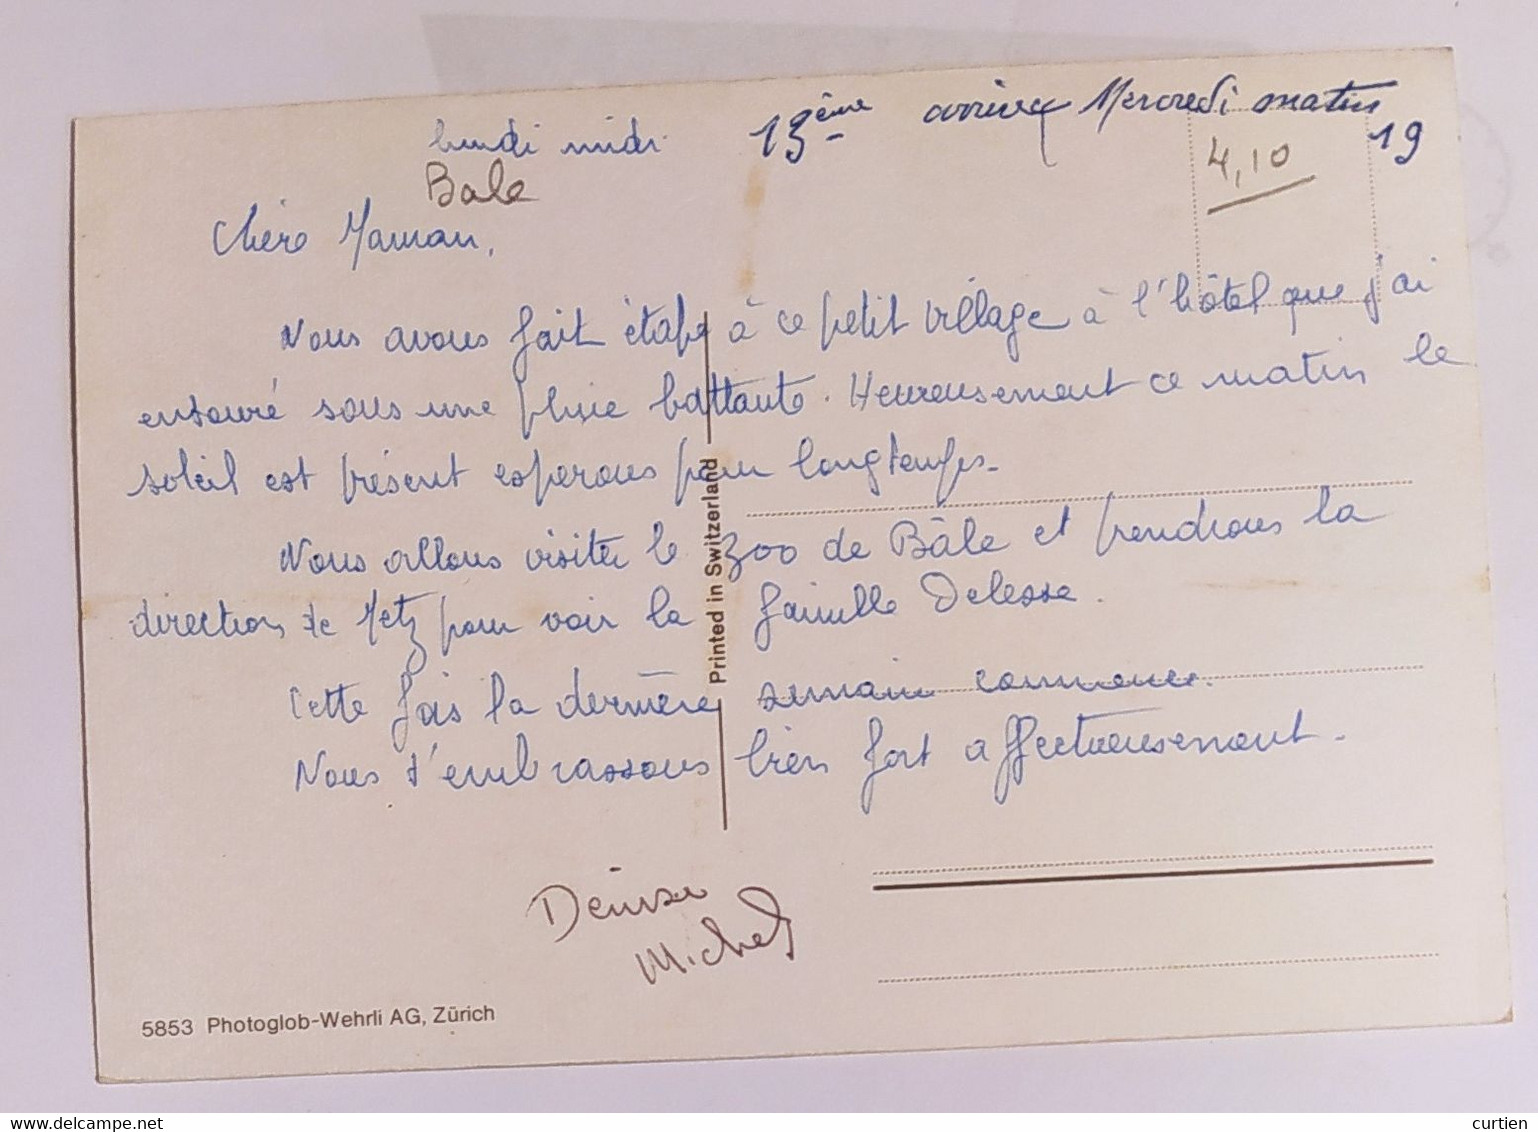 lundi midi 13ème arrivée Mercredi matin
Bale 4,10 19
Chère Maman,
Nous avons fait étape à ce petit village à l'hôtel que j'ai
entouré sous une pluie battante. Heureusement ce matin le
soleil est présent esperons pour longtemps.
Nous allons visiter le zoo de Bâle et prendrons la
direction de Metz pour voir la famille Delesse.
Cette fois la dernière semaine commence.
Nous t'embrassons bien fort affectueusement.
Denise
Michel
Printed in Switzerland
5853 Photoglob-Wehrli AG, Zürich
www.delcampe.net
curtien